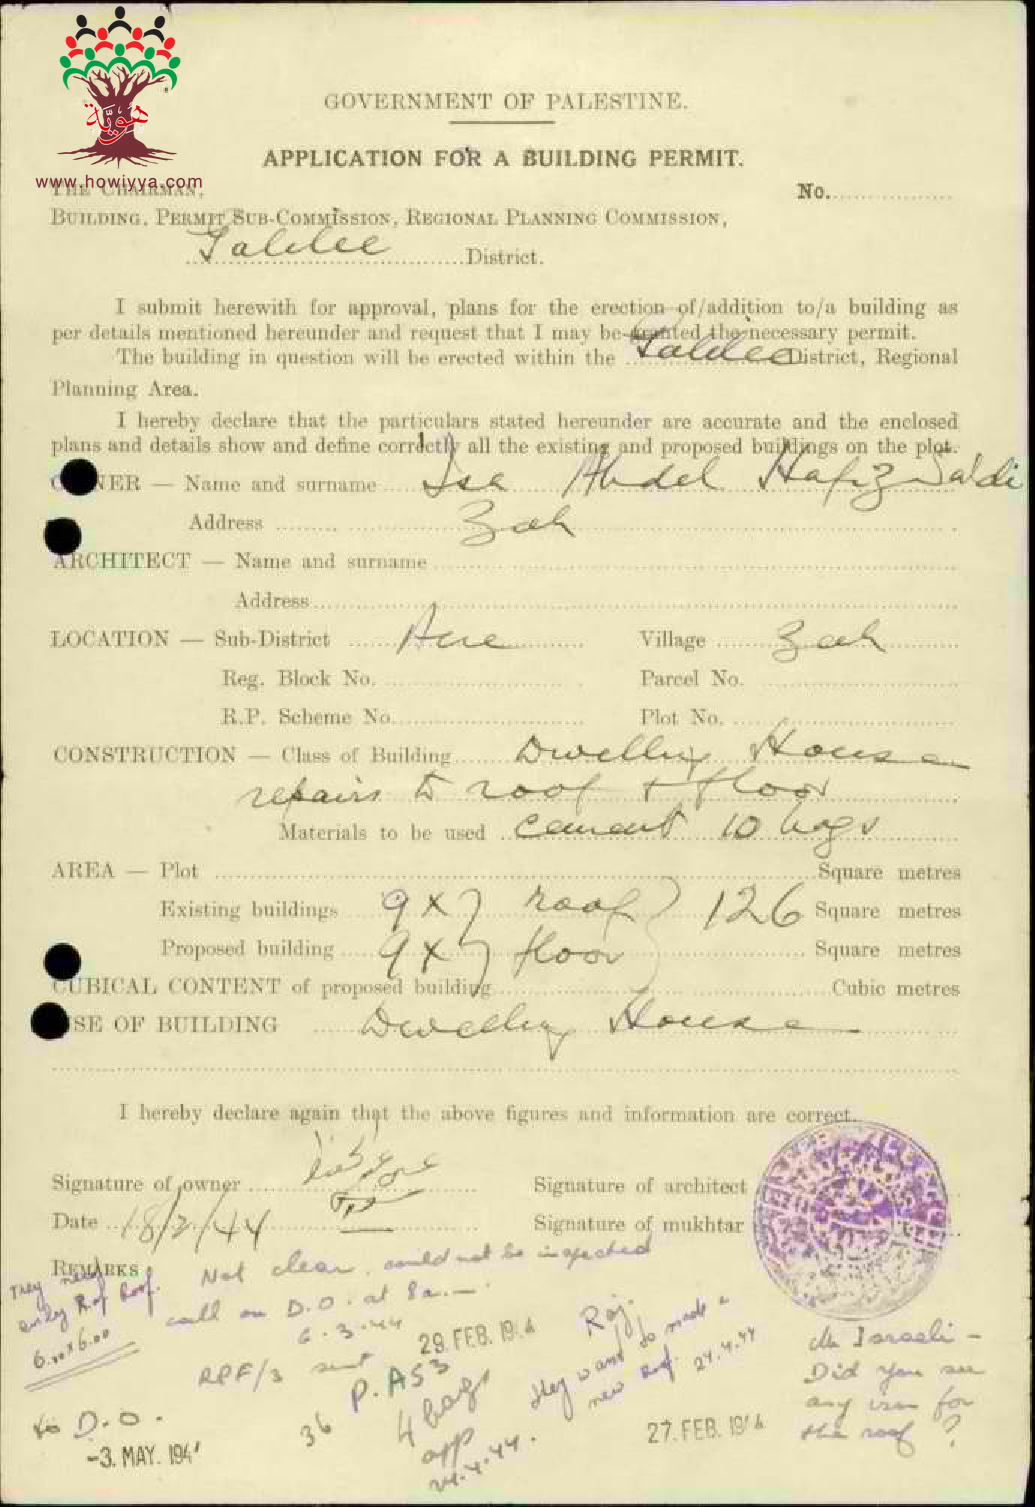 هوية
www.howiyya.com
GOVERNMENT OF PALESTINE.
APPLICATION FOR A BUILDING PERMIT.
THE CHAIRMAN,
No.
BUILDING, PERMIT SUB-COMMISSION, REGIONAL PLANNING COMMISSION,
Galilee District.
I submit herewith for approval, plans for the erection of/addition to/a building as
per details mentioned hereunder and request that I may be granted the necessary permit.
The building in question will be erected within the Galilee District, Regional
Planning Area.
I hereby declare that the particulars stated hereunder are accurate and the enclosed
plans and details show and define correctly all the existing and proposed buildings on the plot.
OWNER — Name and surname Isa Abdel Hafiz Sa'di
Address Zeeb
ARCHITECT — Name and surname
Address
LOCATION — Sub-District Acre Village Zeeb
Reg. Block No. Parcel No.
R.P. Scheme No. Plot No.
CONSTRUCTION — Class of Building Dwelling House
repairs to roof + floor
Materials to be used cement 10 bags
AREA — Plot Square metres
Existing buildings 9 x 7 roof 126 Square metres
Proposed building 9 x 7 floor Square metres
CUBICAL CONTENT of proposed building Cubic metres
USE OF BUILDING Dwelling House
I hereby declare again that the above figures and information are correct.
Signature of owner Signature of architect
Date 18/2/44 Signature of mukhtar
REMARKS Not clear, could not be inspected
They need
only R of Roof.
6.00 x 6.00
call on D.O. at 8a.—.
6.3.44
29. FEB. 194
RPF/3 sent
P. A53
36
4 bags
app
24.4.44.
They want to made a
new roof. 24.4.44
to D.O.
-3. MAY. 194
27. FEB. 194
Mr Israeli —
Did you see
any iron for
the roof ?